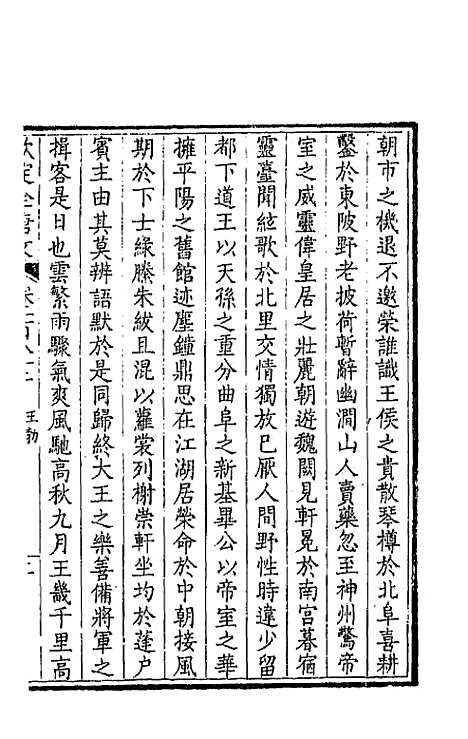 朝市之機退不邀榮誰識王侯之貴散琴樽於北阜喜耕
鑿於東陂野老披荷暫辭幽澗山人賣藥忽至神州驚帝
室之威靈偉皇居之壯麗朝遊魏闕見軒冕於南宮暮宿
靈臺聞絃歌於北里交情獨放已厭人間野性時違少留
都下道王以天孫之重分曲阜之新基畢公以帝室之華
擁平陽之舊館迹塵鐘鼎思在江湖居榮命於中朝接風
期於下士綠縢朱紱且混以蘿裳列榭崇軒坐均於蓬戶
賓主由其莫辨語默於是同歸終大王之樂善備將軍之
揖客是日也雲繁雨驟氣爽風馳高秋九月王畿千里高
欽定全唐文 卷一百八十一 王勃